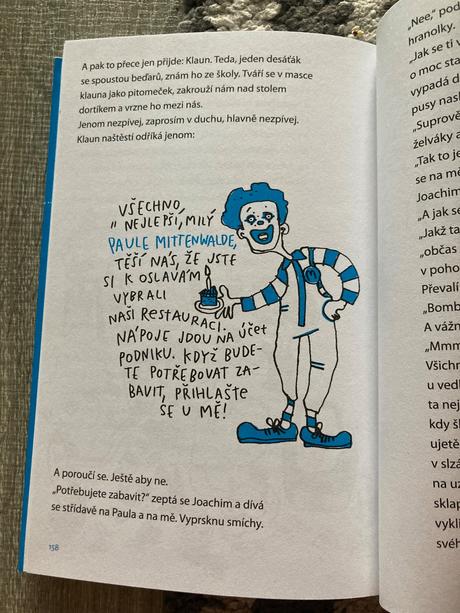 A pak to přece jen přijde: Klaun. Teda, jeden desáťák
se spoustou beďarů, znám ho ze školy. Tváří se v masce
klauna jako pitomeček, zakrouží nám nad stolem
dortíkem a vrzne ho mezi nás.
Jenom nezpívej, zaprosím v duchu, hlavně nezpívej.
Klaun naštěstí odříká jenom:
VŠECHNO
NEJLEPŠÍ, MILÝ
PAULE MITTENWALDE,
TĚŠÍ NÁS, ŽE JSTE
SI K OSLAVÁM
VYBRALI
NAŠI RESTAURACI.
NÁPOJE JDOU NA ÚČET
PODNIKU. KDYŽ BUDE-
TE POTŘEBOVAT ZA-
BAVIT, PŘIHLAŠTE
SE U MĚ!
M
A poroučí se. Ještě aby ne.
„Potřebujete zabavit?“ zeptá se Joachim a dívá
se střídavě na Paula a na mě. Vyprsknu smíchy.
158
„Nee,“ pod
hranolky.
„Jak se ti v
o moc sta
vypadá d
pusy nasl
„Suprově
želváky a
„Tak to je
se na mě
Joachim
„A jak se
„Jakž ta
„občas
v poho
Převalí
„Bomb
A vážn
„Mmm
Všichn
u vedl
ta nej
kdy šl
ujetě
v slzá
na uz
sklap
vykli
svéh